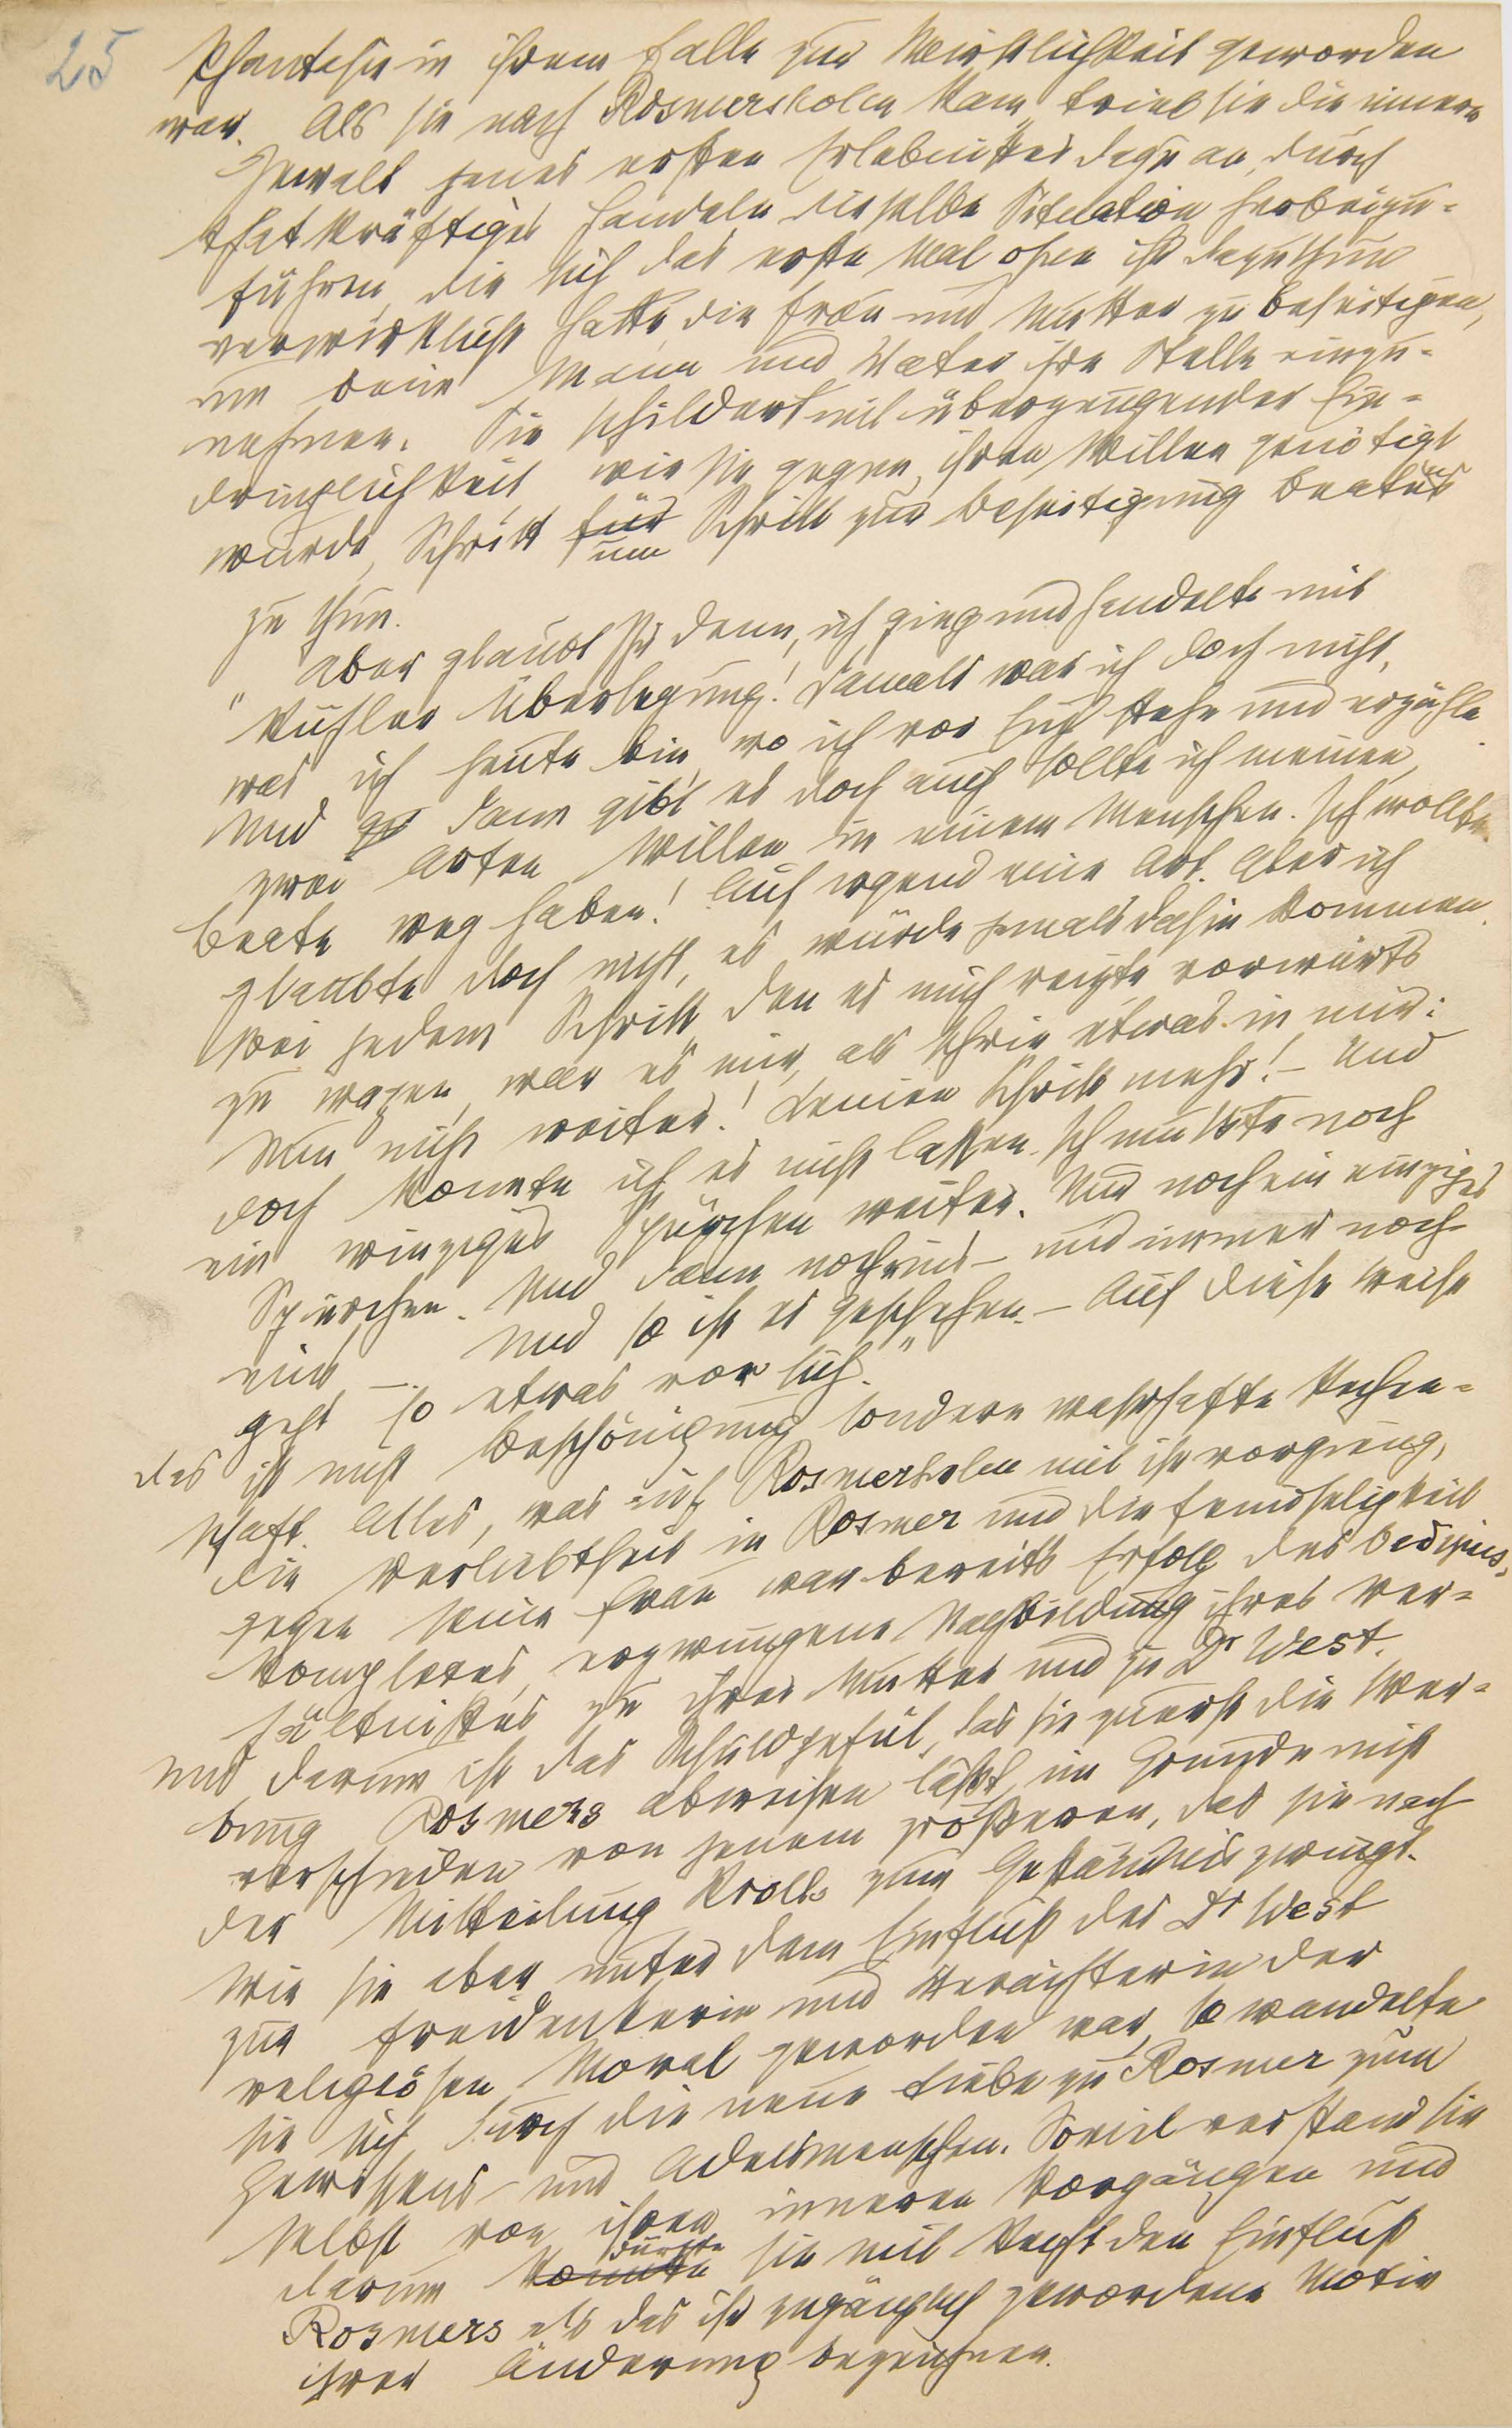 25
Phantasie in ihrem Falle zur Wirklichkeit geworden
war. Als sie nach Rosmersholm kam, trieb sie die innere
Gewalt jenes ersten Erlebnisses dazu an, durch
thatkräftiges Handeln dieselbe Situation herbeizu-
führen, die sich das erste Mal ohne ihr Dazuthun
verwirklicht hatte, die Frau und Mutter zu beseitigen,
um beim Mann und Vater ihre Stelle einzu-
nehmen. Sie schildert mit überzeugender Ein-
dringlichkeit wie sie gegen ihren Willen genötigt
wurde, Schritt für um Schritt zur Beseitigung Beatens
zu thun.
"Aber glaubt Ihr denn, ich ging und handelte mit
kühler Überlegung! Damals war ich doch nicht,
was ich heute bin, wo ich vor Euch stehe und erzähle.
Und dann gibt es doch auch sollte ich meinen,
zwei Arten Willen in einem Menschen. Ich wollte
Beate weg haben! Auf irgend eine Art. Aber ich
glaubte doch nicht, es würde jemals dahin kommen.
Bei jedem Schritt, den es mich reizte vorwärts
zu wagen, war es mir, als schrie etwas in mir:
Nun nicht weiter! Keinen Schritt mehr! – Und
doch konnte ich es nicht lassen. Ich mußte noch
ein winziges Spürchen weiter. Und noch ein einziges
Spürchen. Und dann noch eins – und immer noch
eins –. Und so ist es geschehen. – Auf diese Weise
geht so etwas vor sich."
Das ist nicht Beschönigung sondern wahrhafte Rechen-
schaft. Alles, was auf Rosmersholm mit ihr vorgieng,
die Verliebtheit in Rosmer und die Feindseligkeit
gegen seine Frau war bereits Erfolg des Oedipus-
komplexes, erzwungene Nachbildung ihres Ver-
hältnisses zu ihrer Mutter und zu Dr West.
Und darum ist das Schuldgefül, das sie zuerst die Wer-
bung Rosmers abweisen läßt, im Grunde nicht
verschieden von jenem größeren, das sie nach
der Mitteilung Krolls zum Geständnis zwingt.
Wie sie aber unter dem Einfluß des Dr West
zur Freidenkerin und Verächterin der
religiösen Moral geworden war, so wandelte
sie sich durch die neue Liebe zu Rosmer zum
Gewissens- und Adelsmenschen. Soviel verstand sie
selbst von ihren inneren Vorgängen und
darum konnte durfte sie mit Recht den Einfluß
Rosmers als das ihr zugänglich gewordene Motiv
ihrer Änderung bezeichnen.